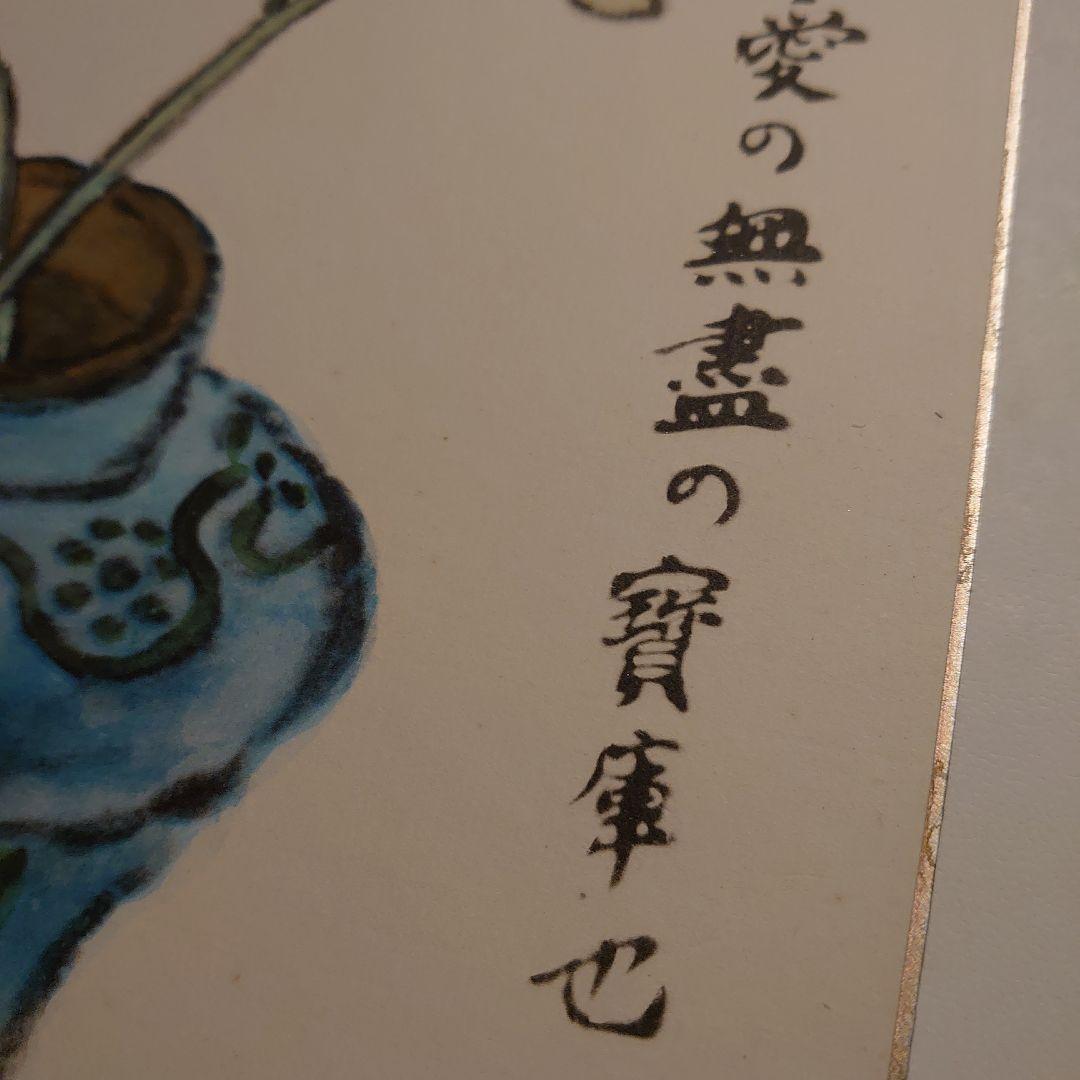 愛の無盡の寶庫也